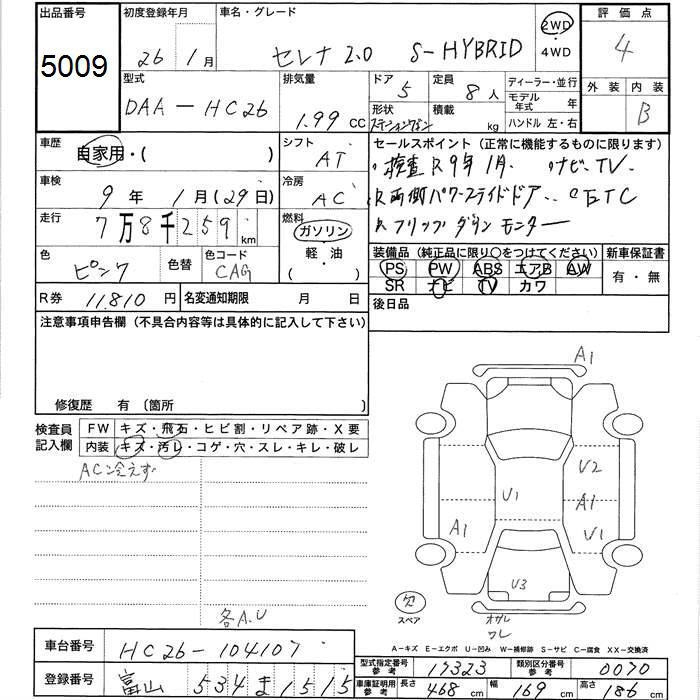 出品番号
5009
初度登録年月
26年 1月
車名・グレード
セレナ 2.0 S-HYBRID
2WD
・
4WD
評価点
4
型式
DAA-HC26
排気量
1.99 cc
ドア
5
定員
8人
形状
ステーションワゴン
積載
kg
ディーラー・並行
モデル年式
年
ハンドル 左・右
外装
内装
B
車歴
自家用・( )
シフト
AT
セールスポイント (正常に機能するものに限ります)
検査 R9年1月. ナビ.TV.
両側パワースライドドア.. ETC
フリップダウンモニター
車検
9年 1月(29日)
冷房
AC
走行
7万8千259km
燃料
ガソリン
・
軽・油
・( )
色
ピンク
色替
色コード
CAG
装備品 (純正品に限り○をつけてください)
PS PW ABS エアB AW
SR ナビ TV カワ
新車保証書
有・無
R券
11.810円
名変通知期限
月 日
後日品
注意事項申告欄 (不具合内容等は具体的に記入して下さい)
修復歴 有 〔箇所 〕
検査員
記入欄
FW キズ・飛石・ヒビ割・リペア跡・X要
内装 キズ・汚レ・コゲ・穴・スレ・キレ・破レ
AC冷えず
各A.U
A1
V2
V1
A1
A1
V1
V3
スペア
A-キズ E-エクボ U-凹み W-補修跡 S-サビ C-腐食 XX-交換済
車台番号
HC26-104107
型式指定番号
参考
17323
類別区分番号
参考
0070
登録番号
富山 534 ま 1515
車庫証明用
参考
長さ 468cm
幅 169cm
高さ 186cm